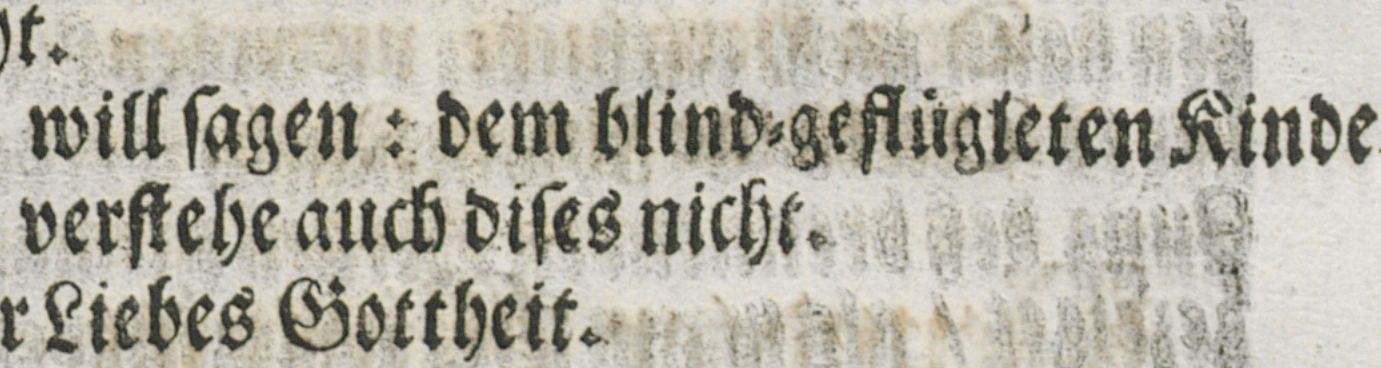 ht.
will ſagen : dem blind-geflügleten Kinde.
verſtehe auch diſes nicht.
r Liebes Gottheit.